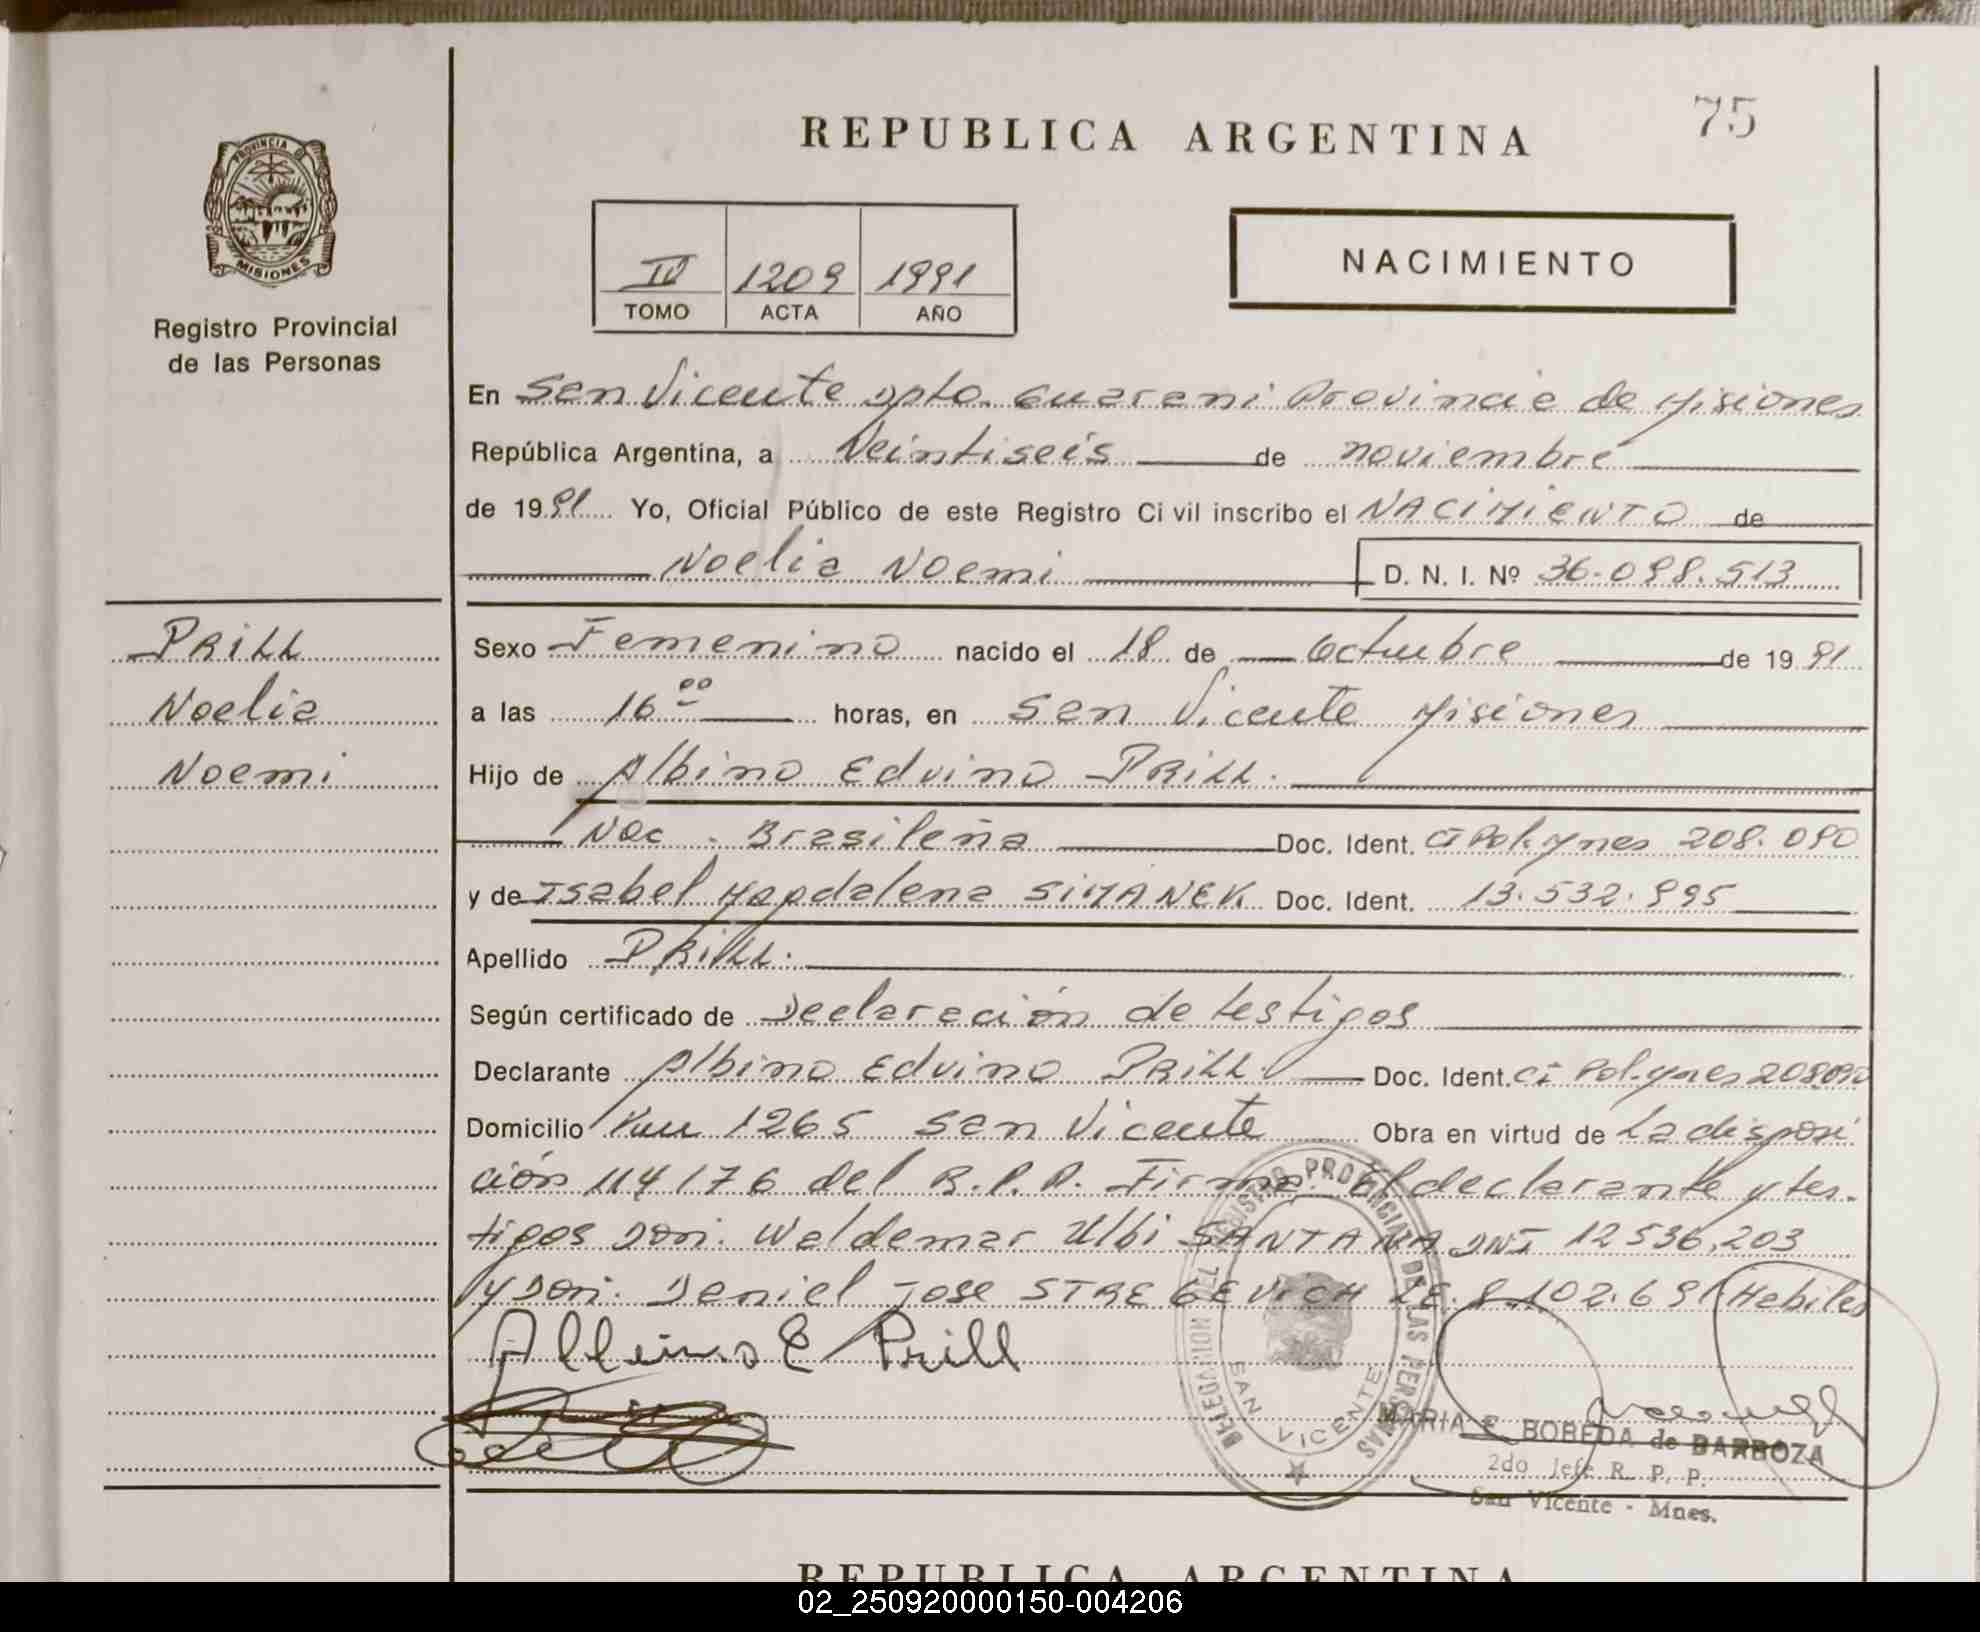 75
REPUBLICA ARGENTINA
PROVINCIA DE
MISIONES
Registro Provincial
de las Personas
IV 1209 1991
TOMO ACTA AÑO
NACIMIENTO
En San Vicente Dpto. Guarani Provincia de Misiones
República Argentina, a Veintiseis de noviembre
de 1991 Yo, Oficial Público de este Registro Civil inscribo el NACIMIENTO de
Noelia Noemi D. N. I. Nº 36.098.513
PRILL
Noelia
Noemi
Sexo Femenino nacido el 18 de Octubre de 1991
a las 16 00 horas, en San Vicente Misiones
Hijo de Albino Edvino PRILL.
Nac. Brasileña Doc. Ident. CI Pol. Mnes 208.090
y de Isabel Magdalena SIMANEK Doc. Ident. 13.532.995
Apellido PRILL.
Según certificado de Declaración de testigos
Declarante Albino Edvino PRILL. Doc. Ident. CI Pol. Mnes 208.090
Domicilio Km 1265 San Vicente Obra en virtud de La disposi
ción 114/76 del R.P.P. Firma El declarante y tes-
tigos Don. Waldemar Ulbi SANTANA DNI 12536.203
y Don. Daniel Jose STREGEVICH LE. 8.102.691 Habiles
Albino E Prill
DELEGACION DEL REGISTRO PROVINCIAL DE LAS PERSONAS
SAN VICENTE
MARIA E. BOBEDA de BARBOZA
2do Jefe R. P. P.
San Vicente - Mnes.
REPUBLICA ARGENTINA
02_250920000150-004206